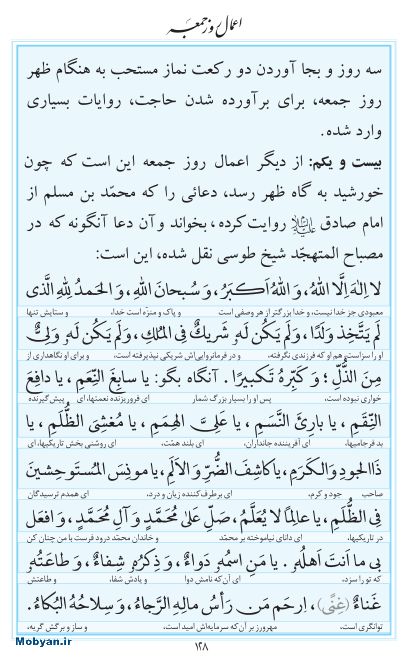 اعمال روز جمعه
سه روز و بجا آوردن دو رکعت نماز مستحب به هنگام ظهر
روز جمعه، برای برآورده شدن حاجت، روایات بسیاری
وارد شده.
بیست و یکم: از دیگر اعمال روز جمعه این است که چون
خورشید به گاه ظهر رسد، دعائی را که محمّد بن مسلم از
امام صادق علیه‌السلام روایت کرده، بخواند و آن دعا آنگونه که در
مصباح المتهجّد شیخ طوسی نقل شده، این است:
لا اِلهَ اِلَّا اللهُ، وَ اللهُ اَکبَرُ، وَ سُبحانَ اللهِ، وَ الحَمدُ لِلّهِ الَّذی
معبودی جز خدا نیست، و خدا بزرگتر از هر وصفی است و پاک و منزّه است خدا، و ستایش تنها
لَم یَتَّخِذ وَلَدًا، وَ لَم یَکُن لَهُ شَریکٌ فِی المُلکِ، وَ لَم یَکُن لَهُ وَلِیٌّ
او را سزاست، هم او که فرزندی نگرفته، و در فرمانروایی‌اش شریکی نپذیرفته است، و برای او نگاهداری از
مِنَ الذُّلِّ؛ وَ کَبِّرهُ تَکبیرًا. آنگاه بگو: یا سابِغَ النِّعَمِ، یا دافِعَ
خواری نبوده است، پس او را بسیار بزرگ شمار ای فروریزنده نعمتها، ای پیش‌گیرنده
النِّقَمِ، یا بارِئَ النَّسَمِ، یا عَلِیَّ الهِمَمِ، یا مُغشِیَ الظُّلَمِ، یا
بد فرجامیها، ای آفریننده جانداران، ای بلند همّت، ای روشنی بخش تاریکیها، ای
ذَا الجودِ وَ الکَرَمِ، یا کاشِفَ الضُّرِّ وَ الاَلَمِ، یا مونِسَ المُستَوحِشینَ
صاحب جود و کرم، ای برطرف‌کننده زیان و درد، ای همدم ترسیدگان
فِی الظُّلَمِ، یا عالِمًا لا یُعَلَّمُ، صَلِّ عَلی مُحَمَّدٍ وَ آلِ مُحَمَّدٍ، وَ افعَل
در تاریکیها، ای دانای نیاموخته بر محمّد و خاندان محمّد درود فرست با من چنان کن
بی ما اَنتَ اَهلُهُ. یا مَنِ اسمُهُ دَواءٌ، وَ ذِکرُهُ شِفاءٌ، وَ طاعَتُهُ
که تو را سزد، ای آن که نامش دوا و یادش شفا، و طاعتش
غَناءٌ (غِنًی)، اِرحَم مَن رَأسُ مالِهِ الرَّجاءُ، وَ سِلاحُهُ البُکاءُ.
توانگری است، مهرورز بر آن که سرمایه‌اش امید است، و ساز و برگش گریه.
۱۲۸
Mobyan.ir